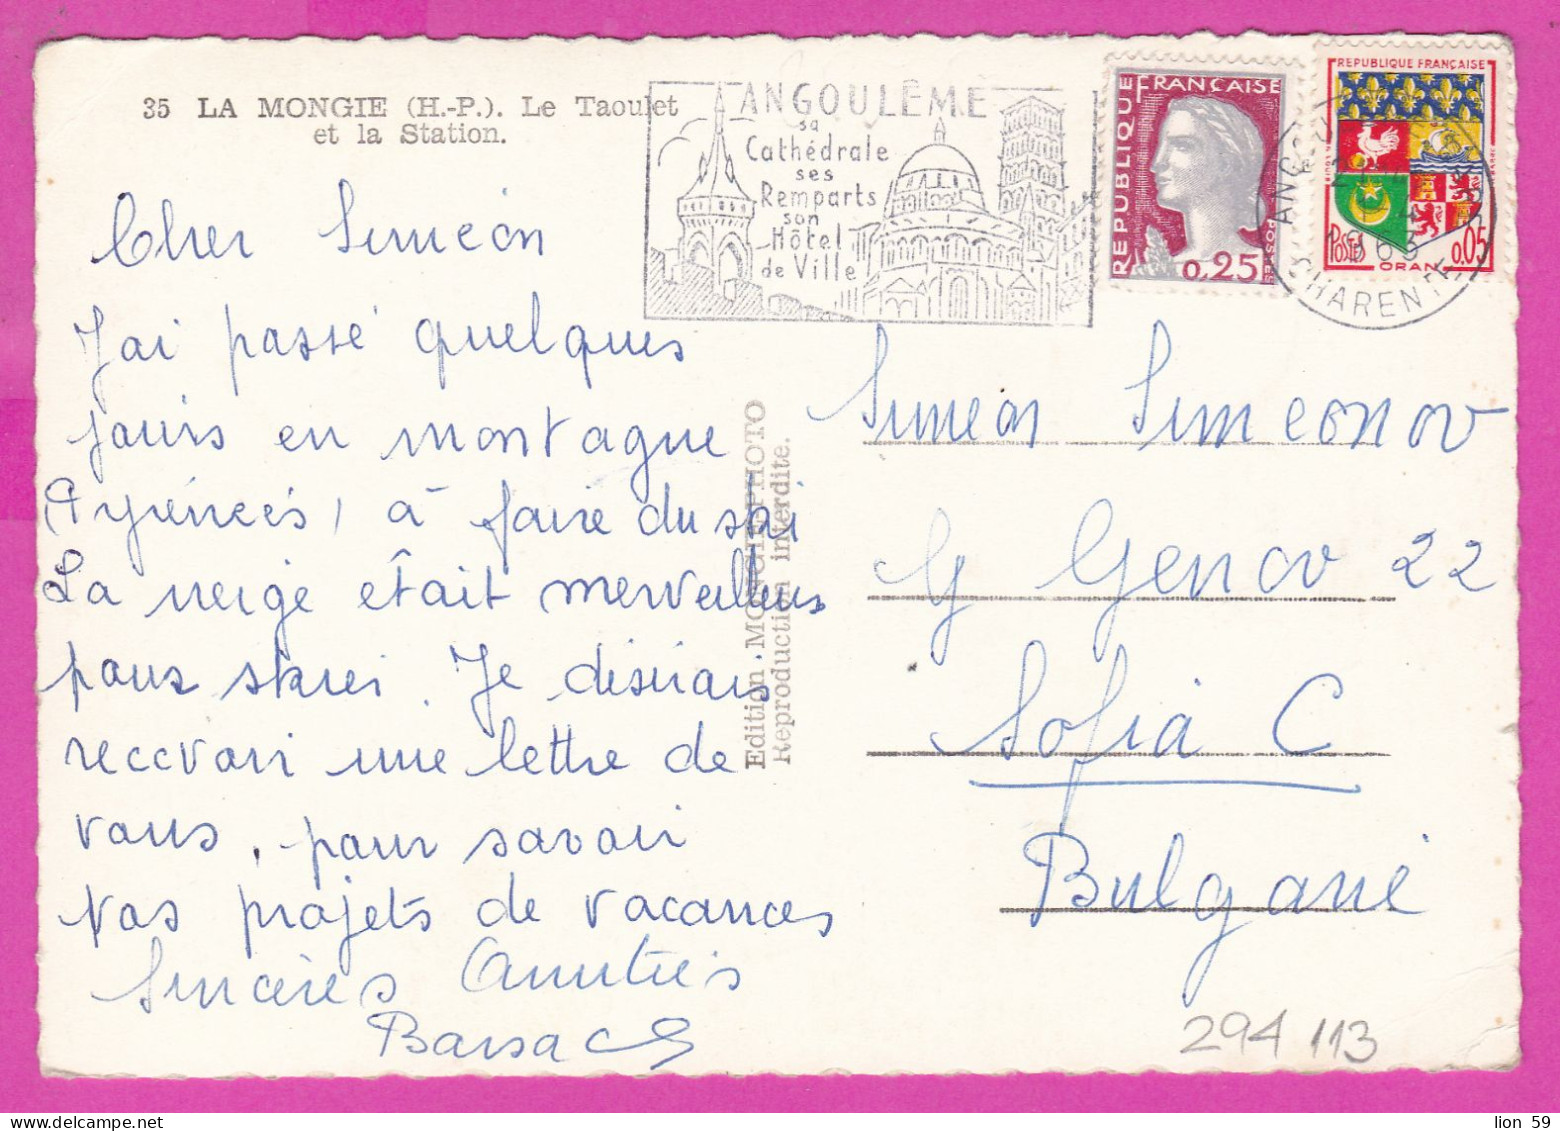 35 LA MONGIE (H.-P.). Le Taoulet
et la Station.
ANGOULÊME
sa
Cathédrale
ses
Remparts
son
Hôtel
de Ville
RÉPUBLIQUE FRANÇAISE
POSTES
0,25
REPUBLIQUE FRANÇAISE
POSTES
0,05
ORAN
63
CHARENTE
Cher Siméon
J'ai passé quelques
jours en montagne
(Pyrénées) à faire du ski
La neige était merveilleuse
pour skier. Je désirais
recevoir une lettre de
vous, pour savoir
vos projets de vacances
Sincères Amitiés
Barsacq
Edition MONGIE-PHOTO
Reproduction interdite.
Simeon Simeonov
G Genov 22
Sofia C
Bulgarie
294113
lion 59